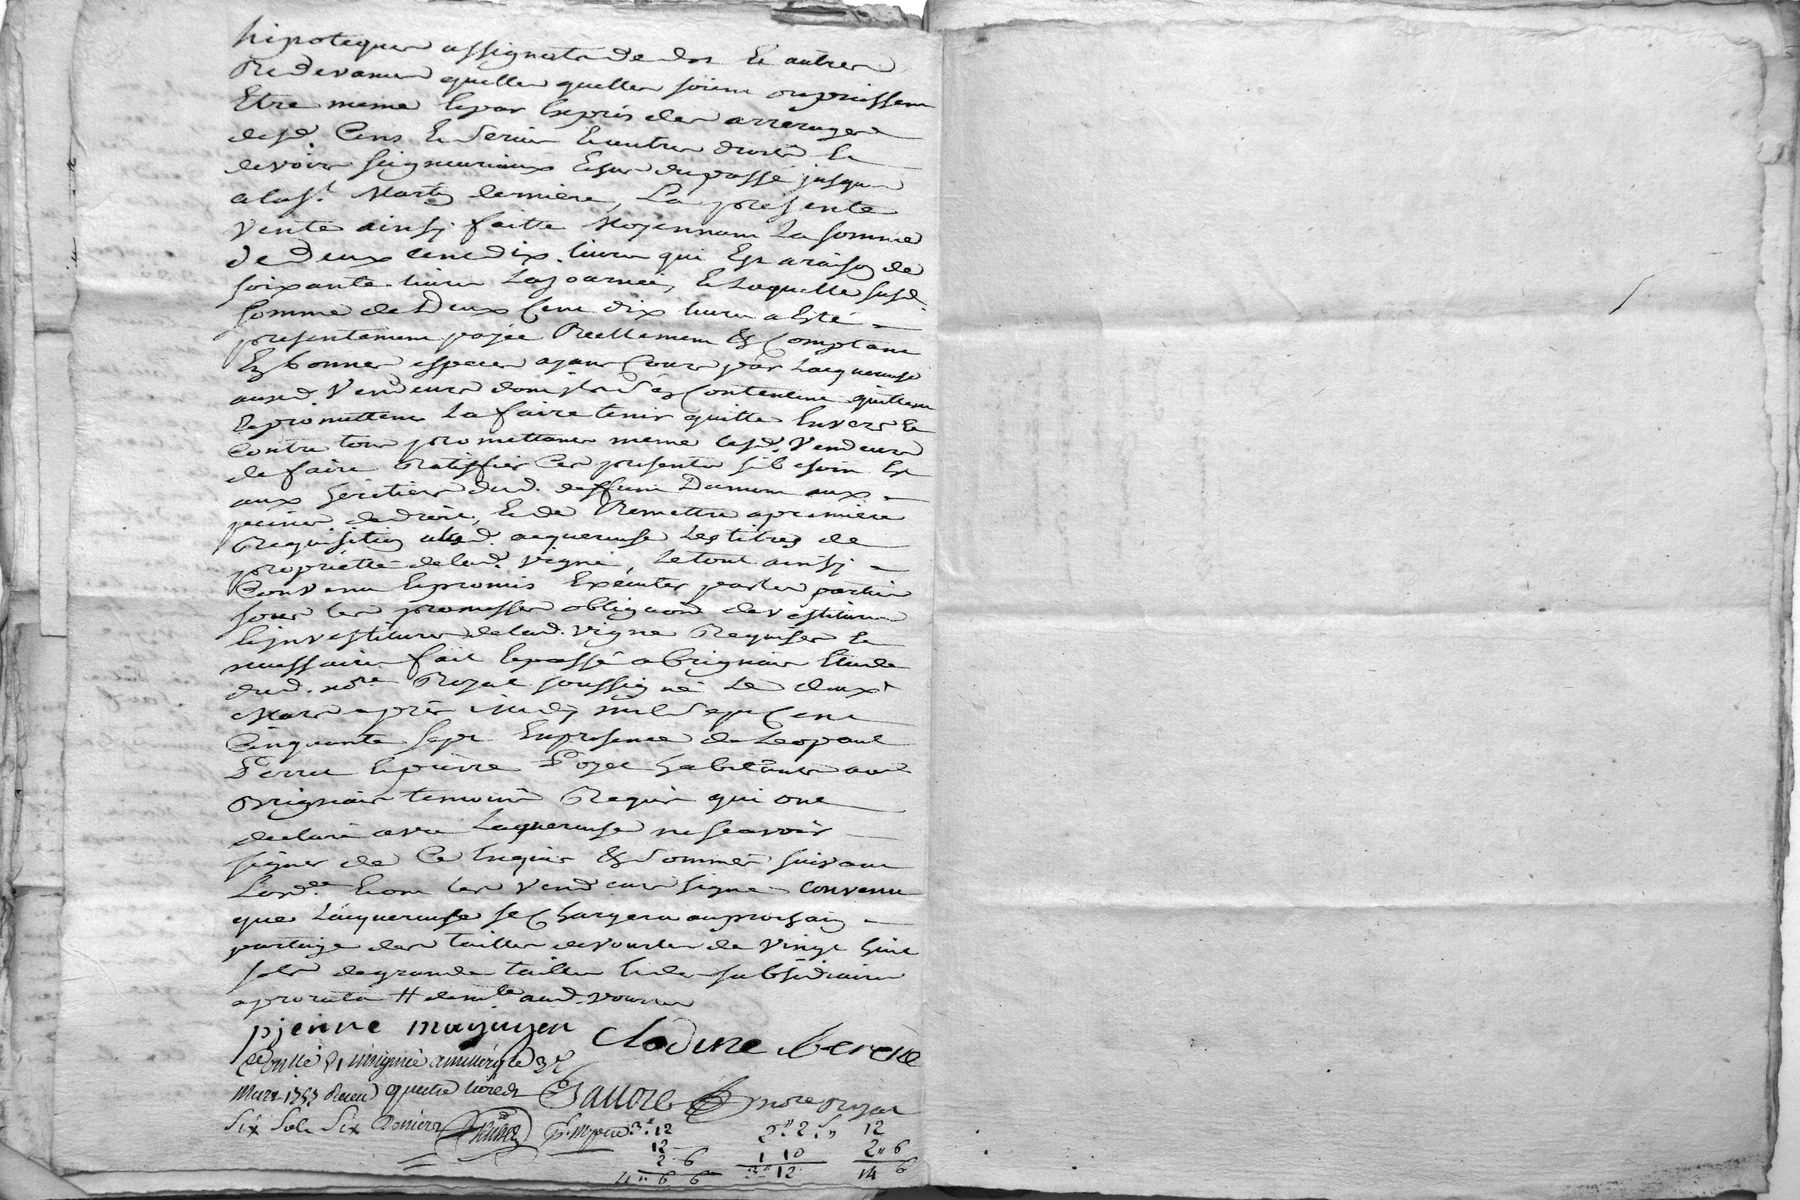 hipotequer assignats de dot et autres
Redevances quelles quelles soient ou puissent
Etre meme et par Exprés des arrerages
desd. Cens et servis et autres droits et
devoirs seigneuriaux Et sur du passé jusqua
a la St. Martin derniere, La presente
Vente ainsy faitte Moyennant La somme
de Deux cent dix livres qui Est a raison de
soixante livres La journée, Et Laquelle susd.
somme de Deux Cent dix livres a Esté
presentement payée Reellement & Comptant
En bonnes especes ayant Cours par Lacquereuse
auxd. Vendeurs dont ils sen Contentent quittent
Et promettent La faire tenir quitte Envers et
Contre tous promettants meme lesd. Vendeurs
de faire Ratiffier Ces presentes si besoin Est
aux heritiers dud. deffunt Dumont aux
peines de droit, Et de Remettre a premiere
Requisition a lad. acquereuse Les titres de
proprietté de lad. Vigne, Le tout ainsy
Convenu Et promis Executer par les parties
sous les promesses obligaons devestitures
Et investitures de lad. vigne Requises et
necessaires fait Et passé a Brignais Etude
dud. nore. Royal soussigné Le deuxe.
Mars après midy mil sept Cent
Cinquante sept En presence de Leopaul
Ferrut et pierre Poyet habitants aud.
Brignais temoins Requis qui ont
declaré avec Lacquereuse ne sçavoir
signer de Ce Enquis & sommés suivant
L'ordce. Et ont les Vendeurs signé Convenu
que Lacquereuse se Chargera au prochain
partage des tailles de Vourles de Vingt huit
sols de grande taille Et des subsidiaires
a prorata
pierre
Clodine
Controllé
Mars 1757 Reçu quatre livres
Six Sols Six Deniers
nore Royal
3" 12
12
2 6
4" 6 6
1 10
3" 12
12
2" 6
14 6